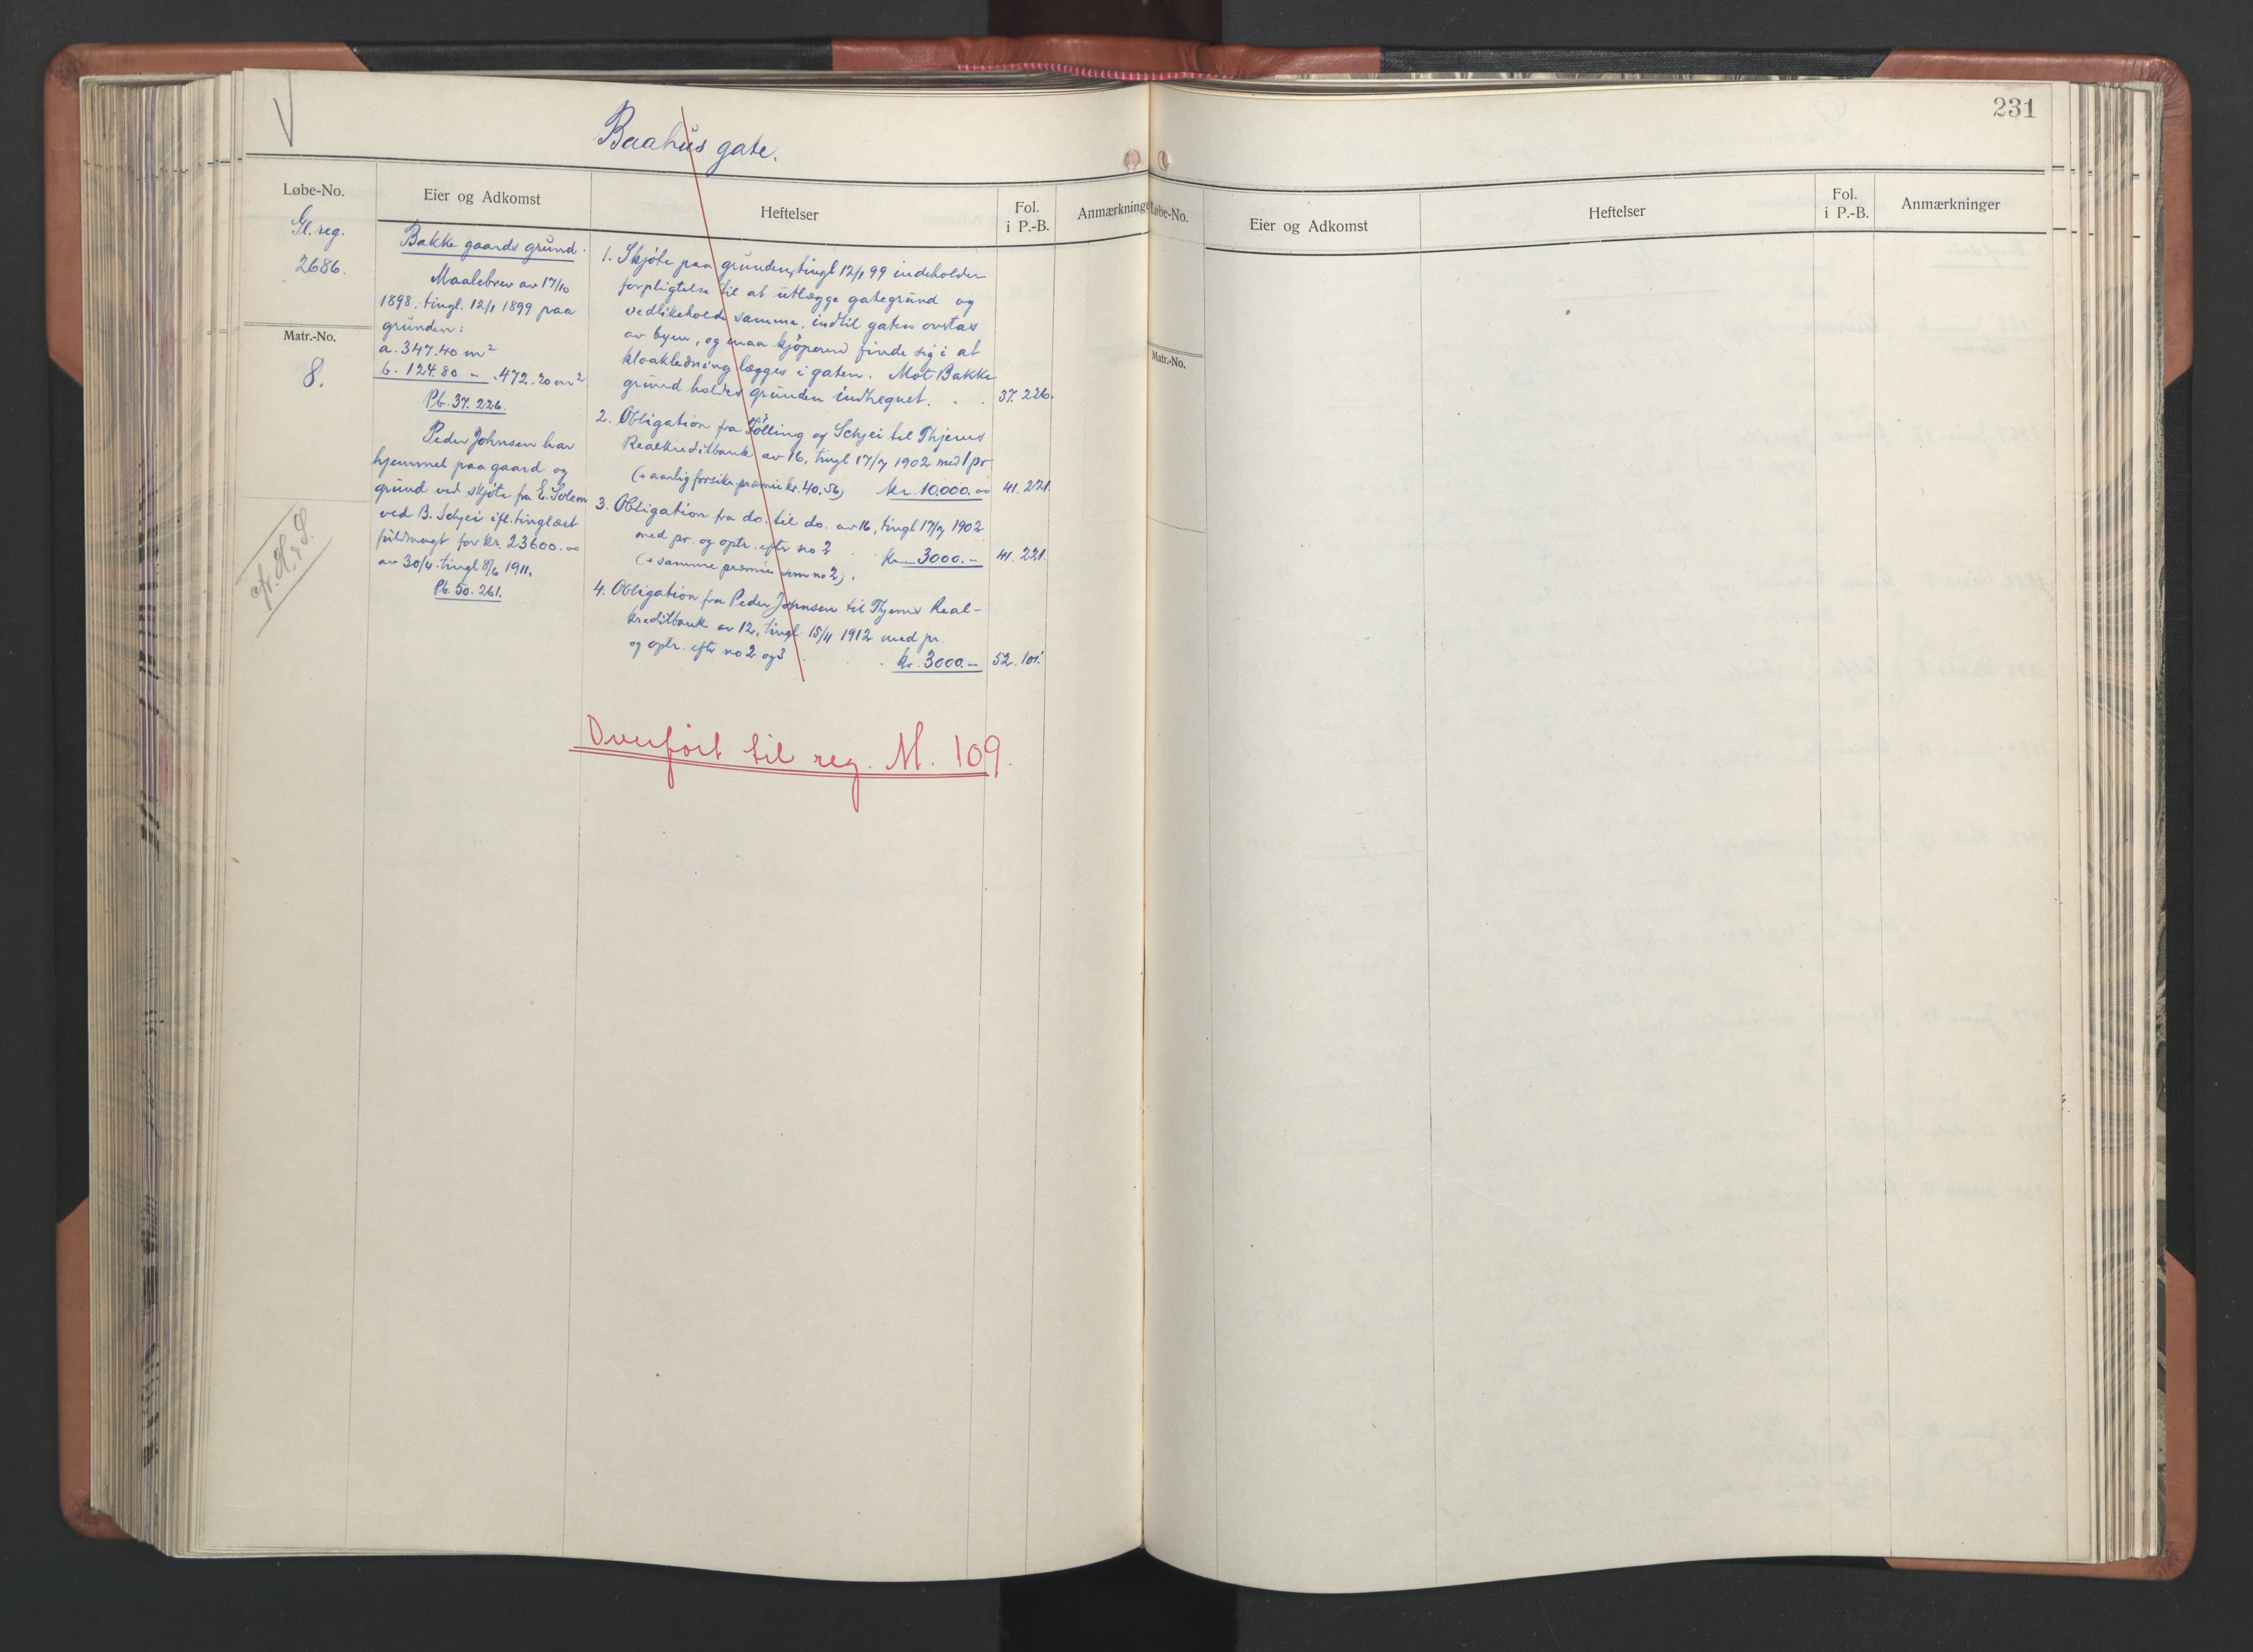 231
Baahus gate.
Løbe-No.
Eier og Adkomst
Heftelser
Fol.
i P.-B.
Anmærkninge
Gl. reg.
2686.
Matr.-No.
8.
cfr. H. & S.
Bakke gaards grund.
Maalebrev av 17/10
1898. tingl. 12/1 1899 paa
grunden:
a. 347.40 m²
b. 124.80 " . 472.20 m²
Pb. 37. 226.
Peder Johnsen har
hjemmel paa gaard og
grund ved skjøte fra E. Solem
ved B. Schjei ifl. tinglæst
fuldmagt for kr. 23600.00
av 30/4. tingl 8/6 1911.
Pb. 50. 261.
1. Skjøte paa grunden, tingl 12/1 99 indeholder
forpligtelse til at utlægge gategrund og
vedlikeholde samme, indtil gaten overtas
av byen, og maa kjøperen finde sig i at
kloakledning lægges i gaten. Mot Bakke
grund holdes grunden indhegnet. . . 37. 226.
2. Obligation fra Følling og Schjei til Thjems
Realkreditbank av 16, tingl 17/7 1902 med 1 pr
(+ aarlig forsikr. præmie kr. 40,56) kr. 10,000.00 41. 221.
3. Obligation fra do. til do. av 16, tingl 17/7 1902
med pr. og optr. efter no 2 . kr. 3000.- 41. 221.
(+ samme præmie som no 2).
4. Obligation fra Peder Johnsen til Thjems Real-
kreditbank av 12, tingl. 15/11 1912 med pr.
og optr. efter no 2 og 3 . . kr. 3000.- 52. 101.
Overført til reg. M. 109.
Løbe-No.
Eier og Adkomst
Heftelser
Fol.
i P.-B.
Anmærkninger
Matr.-No.